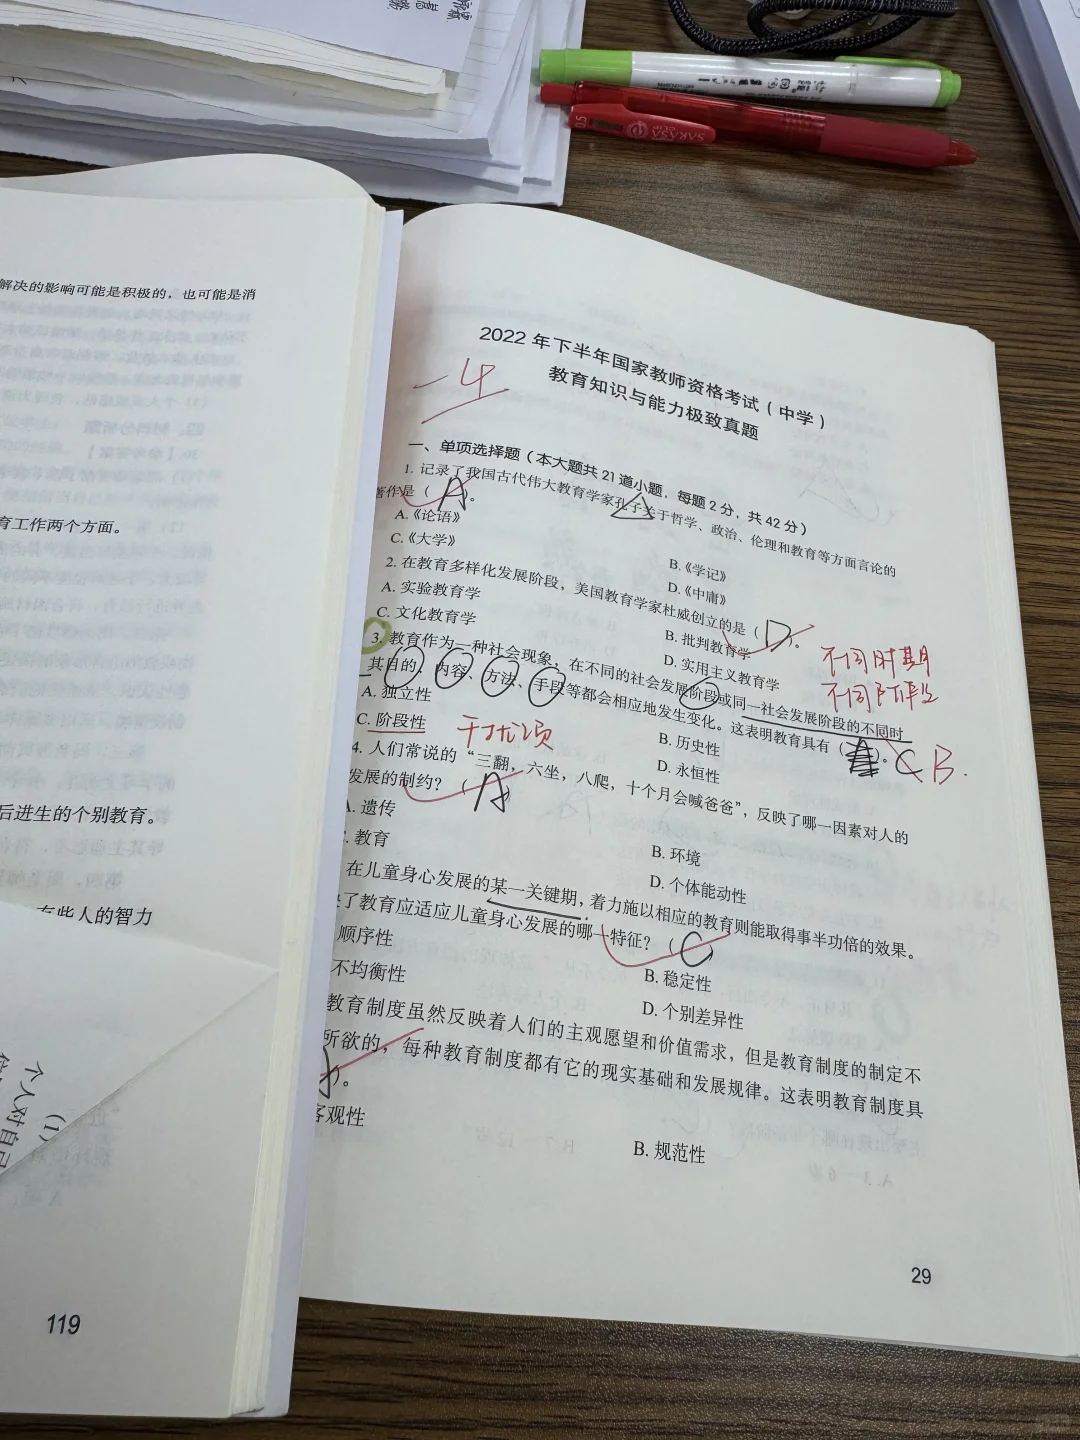 解决的影响可能是积极的，也可能是消
育工作两个方面。
后进生的个别教育。
有些人的智力
个人对自己
(1)
119
SARASA
0.5
2022年下半年国家教师资格考试（中学）
教育知识与能力极致真题
一、单项选择题（本大题共21道小题，每题2分，共42分）
1. 记录了我国古代伟大教育学家孔子关于哲学、政治、伦理和教育等方面言论的
著作是（ A ）。
A.《论语》
B.《学记》
C.《大学》
D.《中庸》
2. 在教育多样化发展阶段，美国教育学家杜威创立的是（ D ）。
A. 实验教育学
B. 批判教育学
C. 文化教育学
D. 实用主义教育学
不同时期
不同阶段
3. 教育作为一种社会现象，在不同的社会发展阶段或同一社会发展阶段的不同时
其目的、内容、方法、手段等都会相应地发生变化。这表明教育具有（ ）。C B.
A. 独立性
B. 历史性
C. 阶段性 干扰项
D. 永恒性
4. 人们常说的“三翻，六坐，八爬，十个月会喊爸爸”，反映了哪一因素对人的
发展的制约？（ A ）
A. 遗传
B. 环境
. 教育
D. 个体能动性
在儿童身心发展的某一关键期，着力施以相应的教育则能取得事半功倍的效果。
了教育应适应儿童身心发展的哪一特征？（ C ）
顺序性
B. 稳定性
不均衡性
D. 个别差异性
教育制度虽然反映着人们的主观愿望和价值需求，但是教育制度的制定不
所欲的，每种教育制度都有它的现实基础和发展规律。这表明教育制度具
）。
客观性
B. 规范性
29